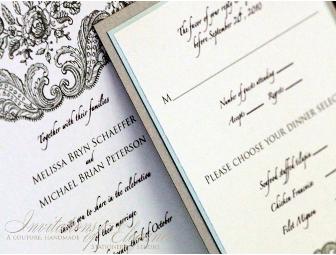 Together with their families
MELISSA BRYN SCHAEFFER
and
MICHAEL BRIAN PETERSON
you to share in the celebration
of their marriage
third of October
The favor of your reply is
before September 20th, 2010
M
Number of guests attending
Accepts Regrets
PLEASE CHOOSE YOUR DINNER SELEC
Seafood stuffed Tilapia
Chicken Francaise
Filet Mignon
Invitations
A COUTURE, HANDMADE